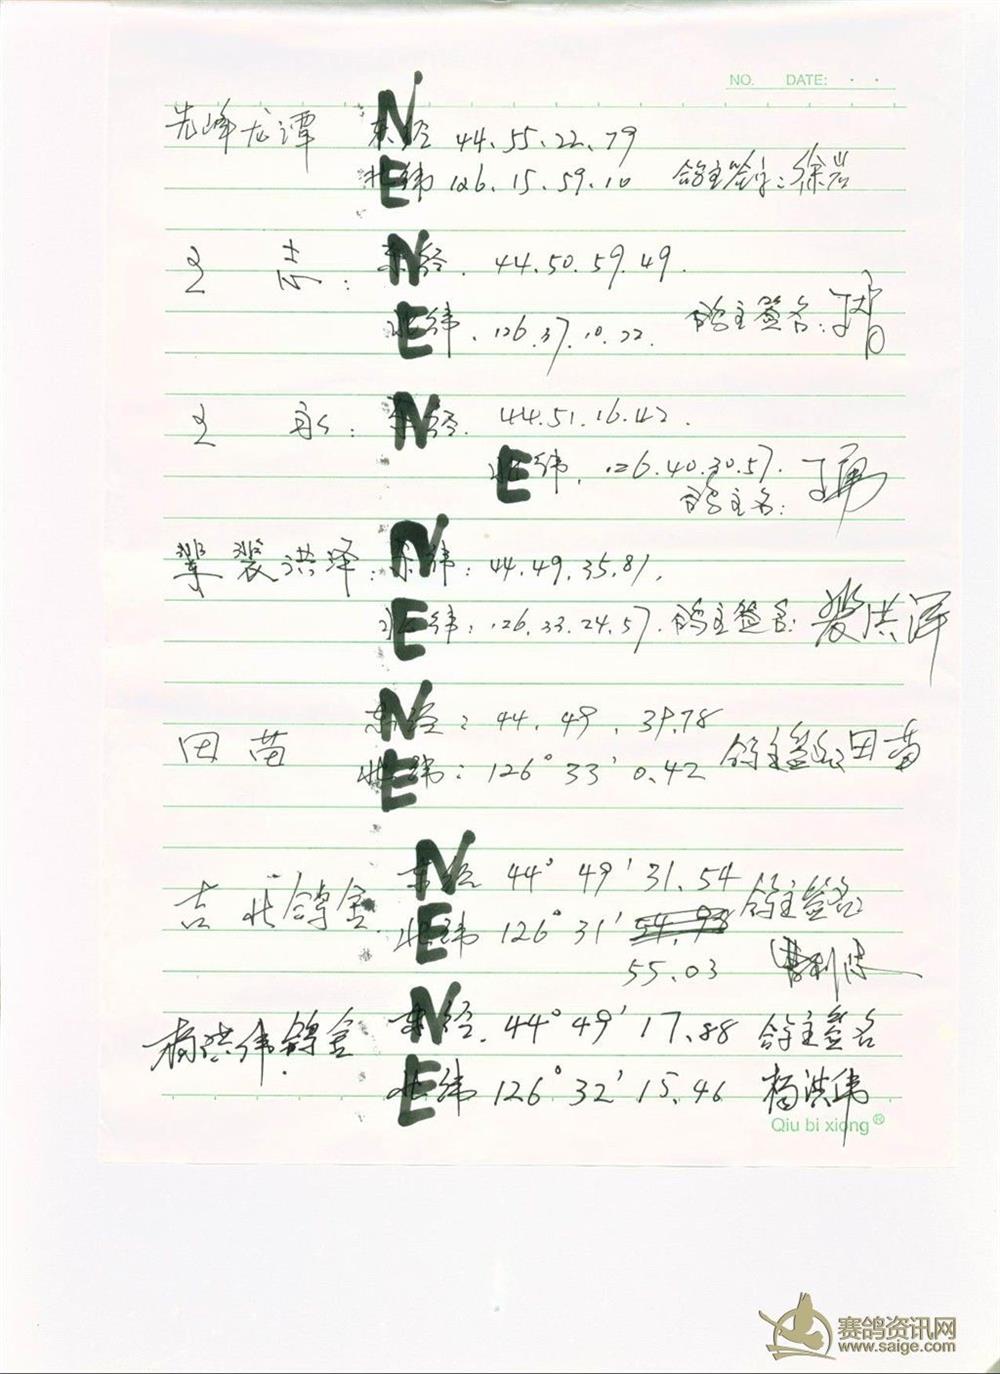 NO. DATE: · ·
先峰龙潭 东经 N 44.55.22.79
北纬 E 126.15.59.10 鸽主签字:徐岩
王志: 东经 N. 44.50.59.49.
北纬 E. 126.37.10.22. 鸽主签名:
王 : 东经 N. 44.51.16.42.
北纬 E. 126.40.30.57.
鸽主名:
裴洪泽: 东纬 N: 44.49.35.81.
北纬 E: 126.33.24.57. 鸽主签名: 裴洪泽
东经 N: 44.49.39.78
田苗 北纬 E: 126°33′0.42 鸽主签名 田苗
东经 N 44°49′31.54 鸽主签名
吉北鸽舍 北纬 E 126°31′
55.03
杨洪伟鸽舍 东经 N. 44°49′17.88 鸽主签名
北纬 E 126°32′15.46 杨洪伟
Qiu bi xiong®
赛鸽资讯网
www.saige.com